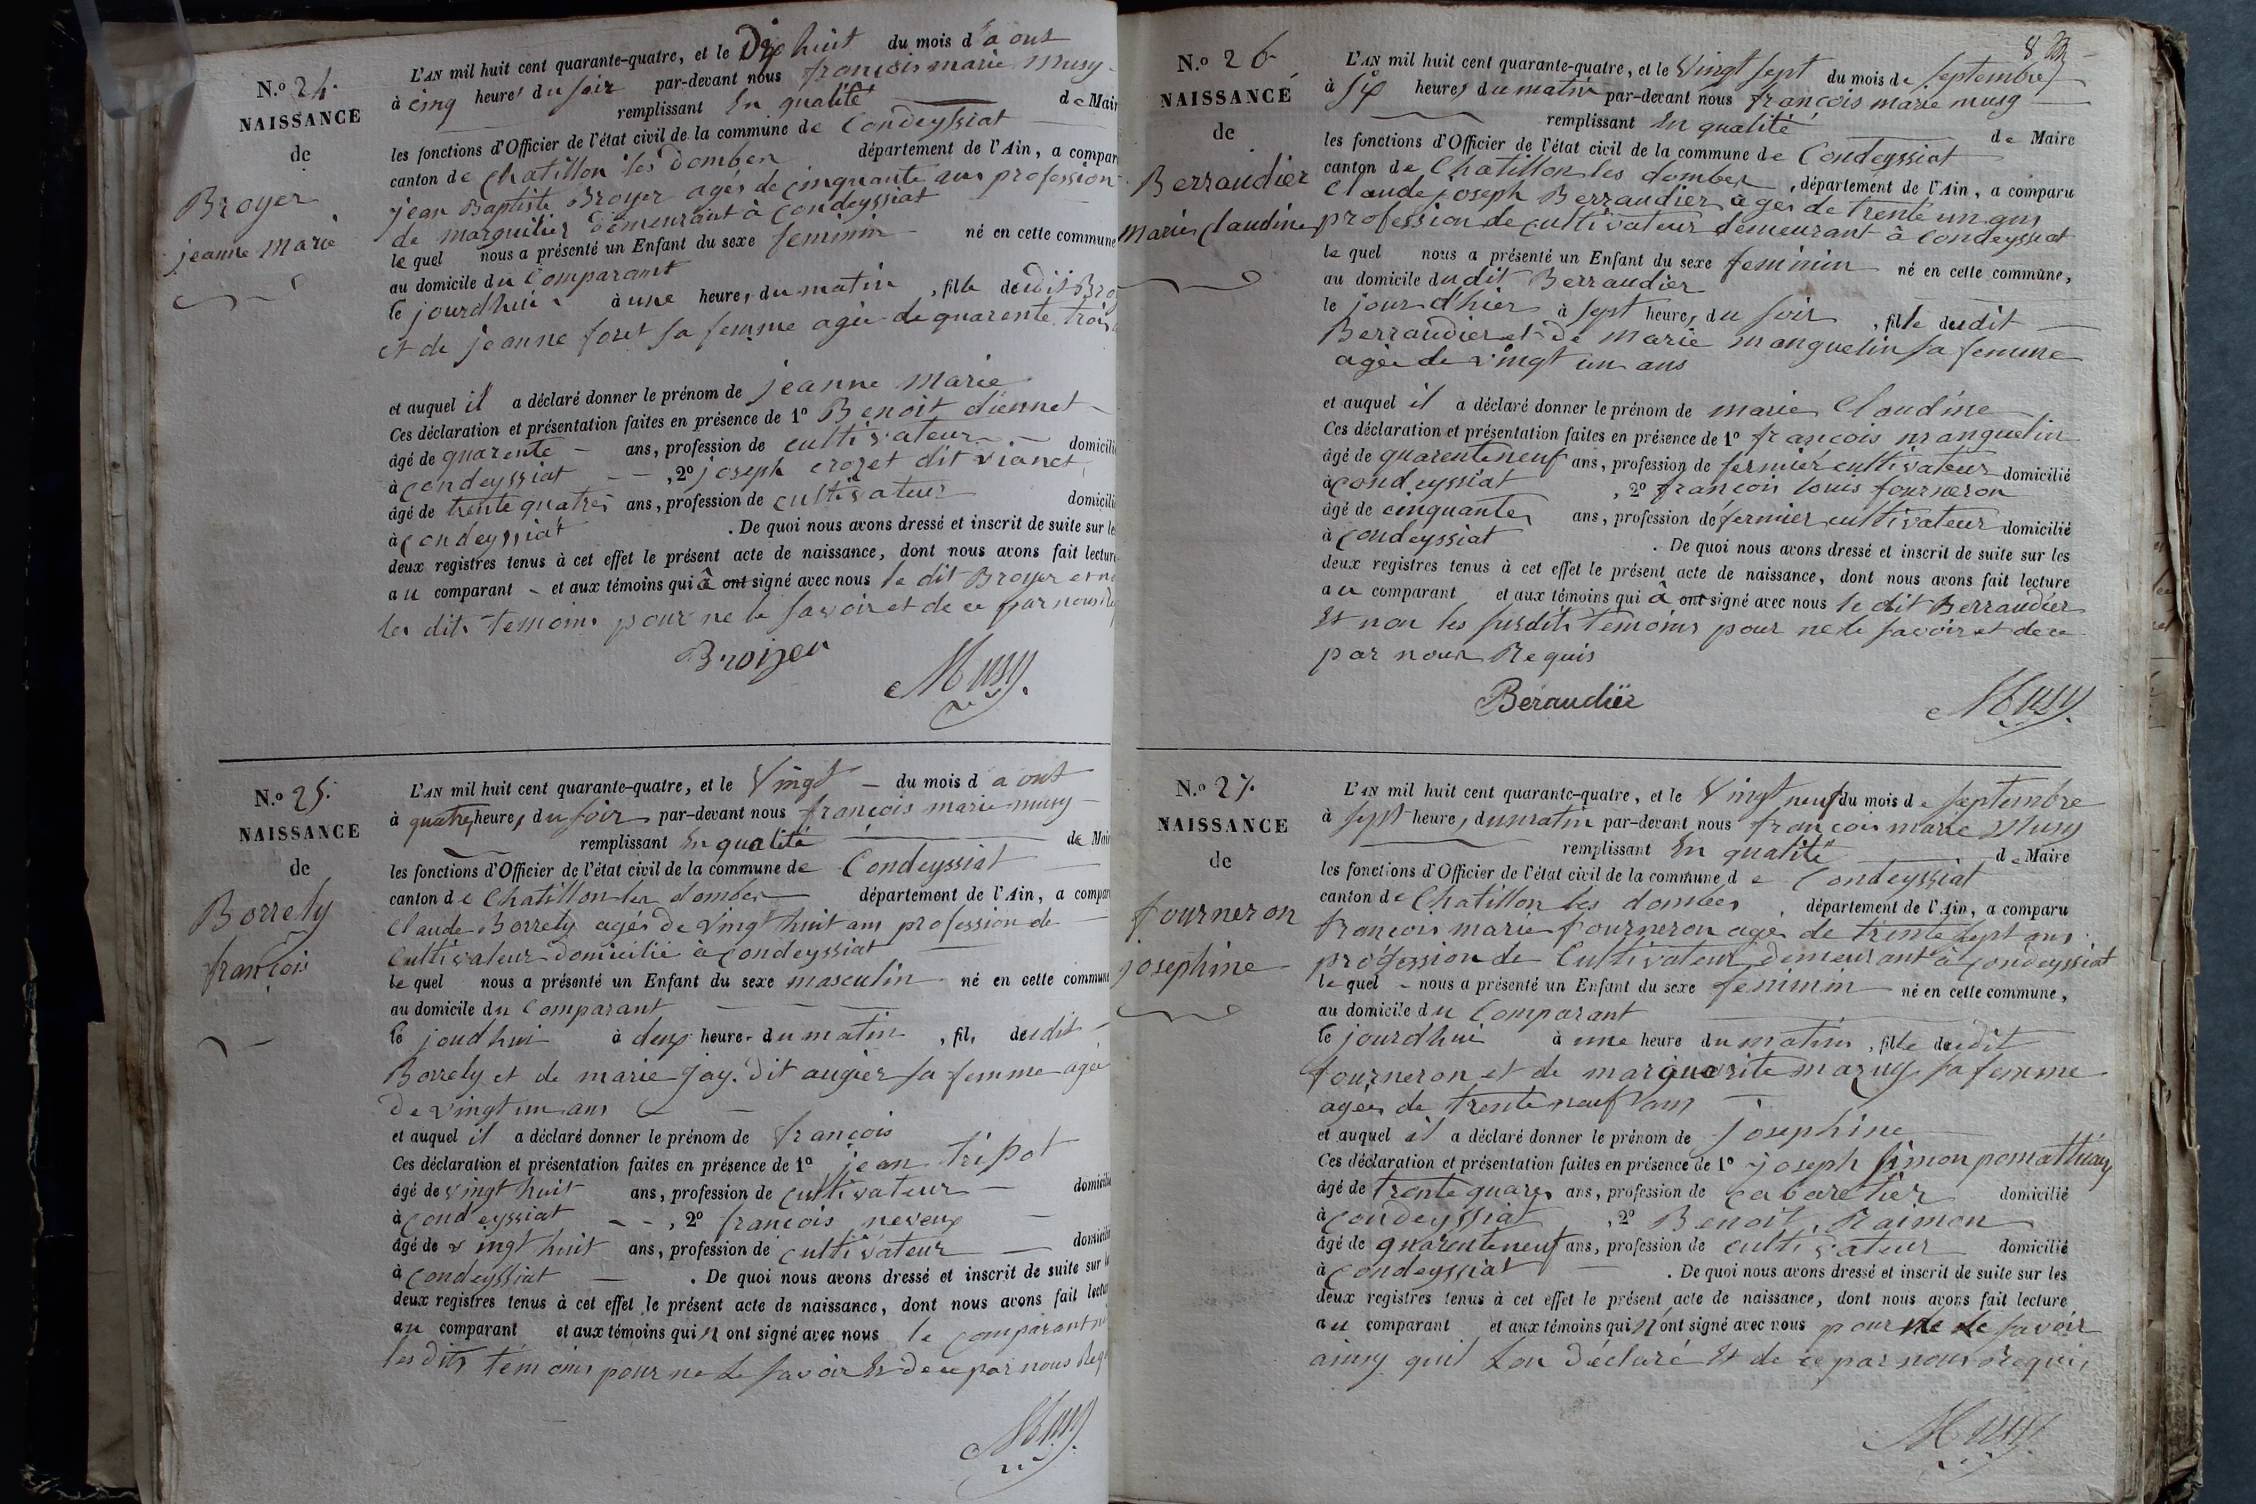 N.o 24.
NAISSANCE
de
Broyer
jeanne marie
L'AN mil huit cent quarante-quatre, et le Dix huit du mois d'aout
à cinq heures du soir par-devant nous françois marie Musy
remplissant En qualité de Mair
les fonctions d'Officier de l'état civil de la commune de Condeyssiat
canton de Chatillon les Dombes département de l'Ain, a compar
jean Baptiste Broyer agés de cinquante ans profession
de marguilier demeurant à Condeyssiat
le quel nous a présenté un Enfant du sexe feminin né en cette commune
au domicile du Comparant
le jourdhui à une heure, du matin, fille dudit Bro
et de jeanne foret sa femme agée de quarente trois
et auquel il a déclaré donner le prénom de jeanne marie
Ces déclaration et présentation faites en présence de 1o Benoit diennet
âgé de quarente ans, profession de cultivateur domicili
à condeyssiat , 2o joseph crozet dit vianet
âgé de trente quatre ans, profession de cultivateur domicili
à condeyssiat . De quoi nous avons dressé et inscrit de suite sur le
deux registres tenus à cet effet le présent acte de naissance, dont nous avons fait lecture
au comparant et aux témoins qui à ont signé avec nous le dit Broyer et n
les dits temoins pour ne le savoir et de ce par nous
Broijer
Musy
N.o 25.
NAISSANCE
de
Borrely
françois
L'AN mil huit cent quarante-quatre, et le Vingt du mois d aout
à quatre heures du soir par-devant nous françois marie musy
remplissant En qualité de Mair
les fonctions d'Officier de l'état civil de la commune de Condeyssiat
canton de Chatillon les dombes département de l'Ain, a compar
Claude Borrely agés de vingt huit ans profession de
Cultivateur domicilié à condeyssiat
le quel nous a présenté un Enfant du sexe masculin né en cette commune
au domicile du Comparant
le joudhui à deux heure. du matin, fils dudit
Borrely et de marie Jay. dit augier sa femme agée
de vingt un ans
et auquel il a déclaré donner le prénom de françois
Ces déclaration et présentation faites en présence de 1o jean tripot
âgé de vingt huit ans, profession de cultivateur domicilié
à condeyssiat , 2o françois neveux
âgé de vingt huit ans, profession de cultivateur domicilié
à condeyssiat . De quoi nous avons dressé et inscrit de suite sur le
deux registres tenus à cet effet le présent acte de naissance, dont nous avons fait lectur
au comparant et aux témoins qui n ont signé avec nous le comparant n
les dits témoins pour ne le savoir Et de ce par nous Requ
Musy
8
N.o 26
NAISSANCE
de
Berraudier
marie claudine
L'AN mil huit cent quarante-quatre, et le Vingt sept du mois de septembre
à six heures du matin par-devant nous françois marie musy
remplissant En qualité de Maire
les fonctions d'Officier de l'état civil de la commune de Condeyssiat
canton de Chatillon les dombes, département de l'Ain, a comparu
Claude joseph Berraudier agés de trente un ans
profession de cultivateur demeurant à condeyssiat
le quel nous a présenté un Enfant du sexe feminin né en cette commune,
au domicile du dit Berraudier
le jour d'hier à sept heures du soir, fille dudit
Berraudier et de marie manguelin sa femme
agée de vingt un ans
et auquel il a déclaré donner le prénom de marie Claudine
Ces déclaration et présentation faites en présence de 1o françois manguelin
âgé de quarente neuf ans, profession de fermier cultivateur domicilié
à condeyssiat , 2o françois louis fourneron
âgé de cinquante ans, profession de fermier cultivateur domicilié
à condeyssiat . De quoi nous avons dressé et inscrit de suite sur les
deux registres tenus à cet effet le présent acte de naissance, dont nous avons fait lecture
au comparant et aux témoins qui à ont signé avec nous le dit Berraudier
Et non les susdits témoins pour ne le savoir et de ce
par nous Requis
Béraudier
Musy
N.o 27.
NAISSANCE
de
fourneron
josephine
L'AN mil huit cent quarante-quatre, et le Vingt neuf du mois de septembre
à sept heures du matin par-devant nous françois marie Musy
remplissant En qualité de Maire
les fonctions d'Officier de l'état civil de la commune de Condeyssiat
canton de Chatillon les dombes, département de l'Ain, a comparu
françois marie fourneron agés de trente sept ans
profession de Cultivateur demeurant à condeyssiat
le quel nous a présenté un Enfant du sexe feminin né en cette commune,
au domicile du Comparant
le jourdhui à une heure du matin, fille dudit
fourneron et de marguerite mazuy sa femme
agée de trente neuf ans
et auquel il a déclaré donner le prénom de josephine
Ces déclaration et présentation faites en présence de 1o joseph simon pomathiaux
âgé de trente quatre ans, profession de cabaretier domicilié
à condeyssiat , 2o Benoit Raimon
âgé de quarente neuf ans, profession de cultivateur domicilié
à condeyssiat . De quoi nous avons dressé et inscrit de suite sur les
deux registres tenus à cet effet le présent acte de naissance, dont nous avons fait lecture
au comparant et aux témoins qui n ont signé avec nous pour ne le savoir
ainsy quil Lon déclaré Et de ce par nous requis
Musy